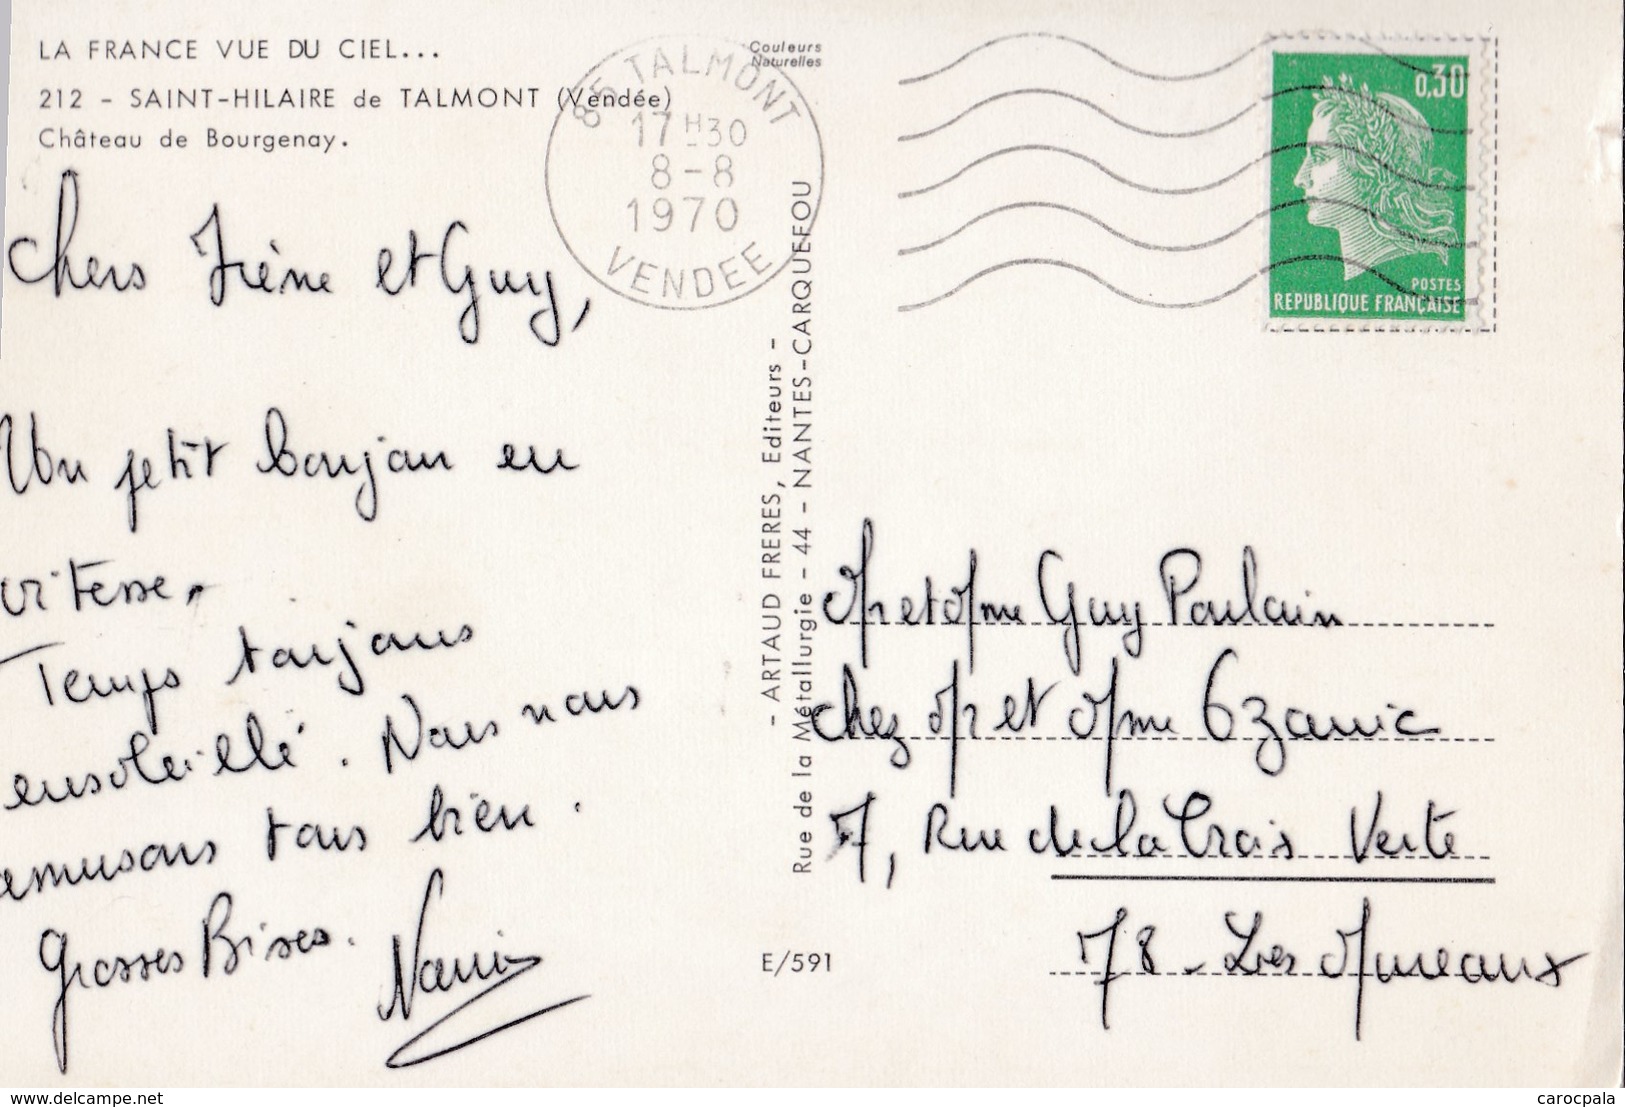 LA FRANCE VUE DU CIEL...
212 - SAINT-HILAIRE de TALMONT (Vendée)
Château de Bourgenay.
Couleurs
Naturelles
85 TALMONT
17 H 30
8 - 8
1970
VENDEE
0,30
POSTES
REPUBLIQUE FRANÇAISE
Chers Irène et Guy,
Un petit bonjour en
vitesse.
Temps toujours
ensoleillé. Nous nous
amusons tous bien.
Grosses Bises.
- ARTAUD FRERES, Editeurs -
Rue de la Métallurgie - 44 - NANTES-CARQUEFOU
Mr et Mme Guy Poulain
chez Mr et Mme Ozanic
7, Rue de la Croix Verte
78 - Les Mureaux
E/591
www.delcampe.net
carocpala